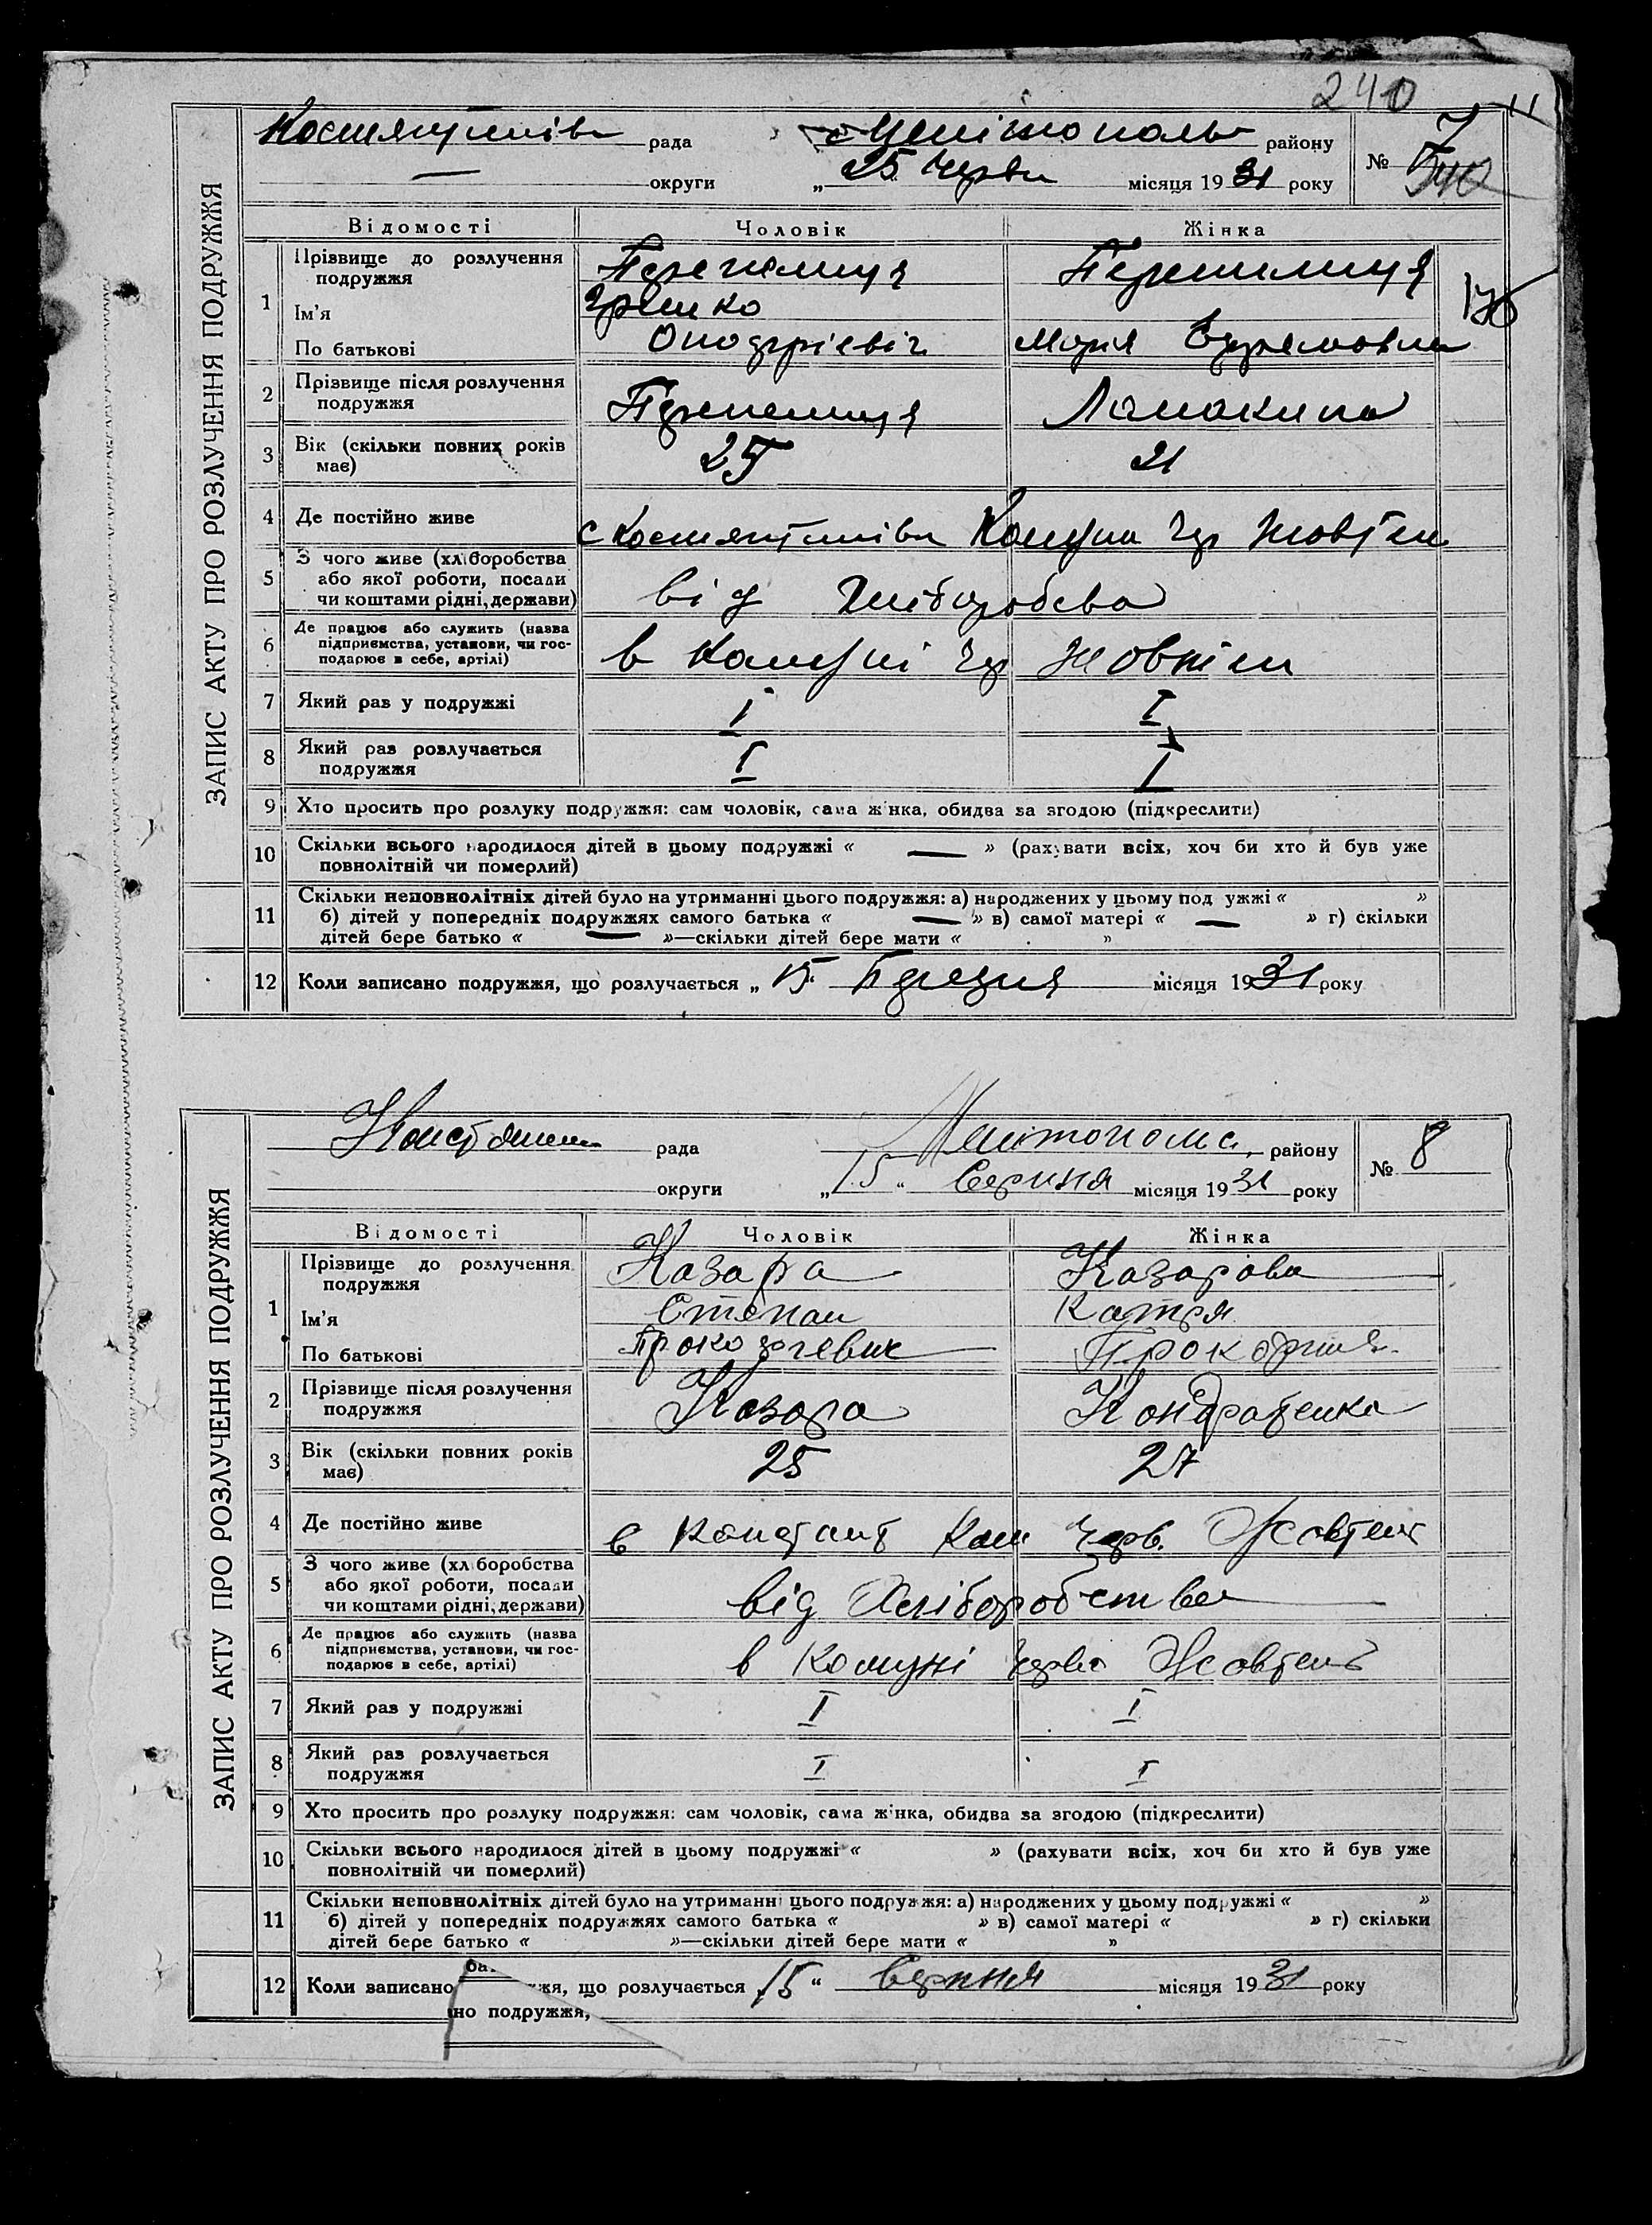 240
11
ЗАПИС АКТУ ПРО РОЗЛУЧЕННЯ ПОДРУЖЖЯ
рада района району № 7
округи „25" Червн місяця 1931 року
Відомості Чоловік Жінка
1 Прізвище до розлучення подружжя
Ім'я Гришко
По батькові Мария
2 Прізвище після розлучення подружжя
3 Вік (скільки повних років має) 25 21
4 Де постійно живе с Жовтен
5 З чого живе (хліборобства або якої роботи, посади чи коштами рідні, держави) від Хлиборобсва
6 Де працює або служить (назва підприємства, установи, чи господарює в себе, артілі) в Комуні Чер Жовтен
7 Який раз у подружжі I I
8 Який раз розлучається подружжя I I
9 Хто просить про розлуку подружжя: сам чоловік, сама жінка, обидва за згодою (підкреслити)
10 Скільки всього народилося дітей в цьому подружжі « — » (рахувати всіх, хоч би хто й був уже
повнолітній чи померлий)
11 Скільки неповнолітніх дітей було на утриманні цього подружжя: а) народжених у цьому подружжі « »
б) дітей у попередніх подружжях самого батька « — » в) самої матері « — » г) скільки
дітей бере батько « — »—скільки дітей бере мати « »
12 Коли записано подружжя, що розлучається „15" Березня місяця 1931 року
ЗАПИС АКТУ ПРО РОЗЛУЧЕННЯ ПОДРУЖЖЯ
рада району № 8
округи „15" Серпня місяця 1931 року
Відомості Чоловік Жінка
1 Прізвище до розлучення подружжя Казара Казарова
Ім'я Степан Катря
По батькові
2 Прізвище після розлучення подружжя Козара Кондратенко
3 Вік (скільки повних років має) 25 27
4 Де постійно живе в Констант Ком Черв. Жовтень
5 З чого живе (хліборобства або якої роботи, посади чи коштами рідні, держави) від Хліборобства
6 Де працює або служить (назва підприємства, установи, чи господарює в себе, артілі) в Комуні Черво Жовтень
7 Який раз у подружжі I I
8 Який раз розлучається подружжя I I
9 Хто просить про розлуку подружжя: сам чоловік, сама жінка, обидва за згодою (підкреслити)
10 Скільки всього народилося дітей в цьому подружжі « » (рахувати всіх, хоч би хто й був уже
повнолітній чи померлий)
11 Скільки неповнолітніх дітей було на утриманні цього подружжя: а) народжених у цьому подружжі « »
б) дітей у попередніх подружжях самого батька « » в) самої матері « » г) скільки
дітей бере батько « »—скільки дітей бере мати « »
12 Коли записано жя, що розлучається „15" Серпня місяця 1931 року
но подружжя,